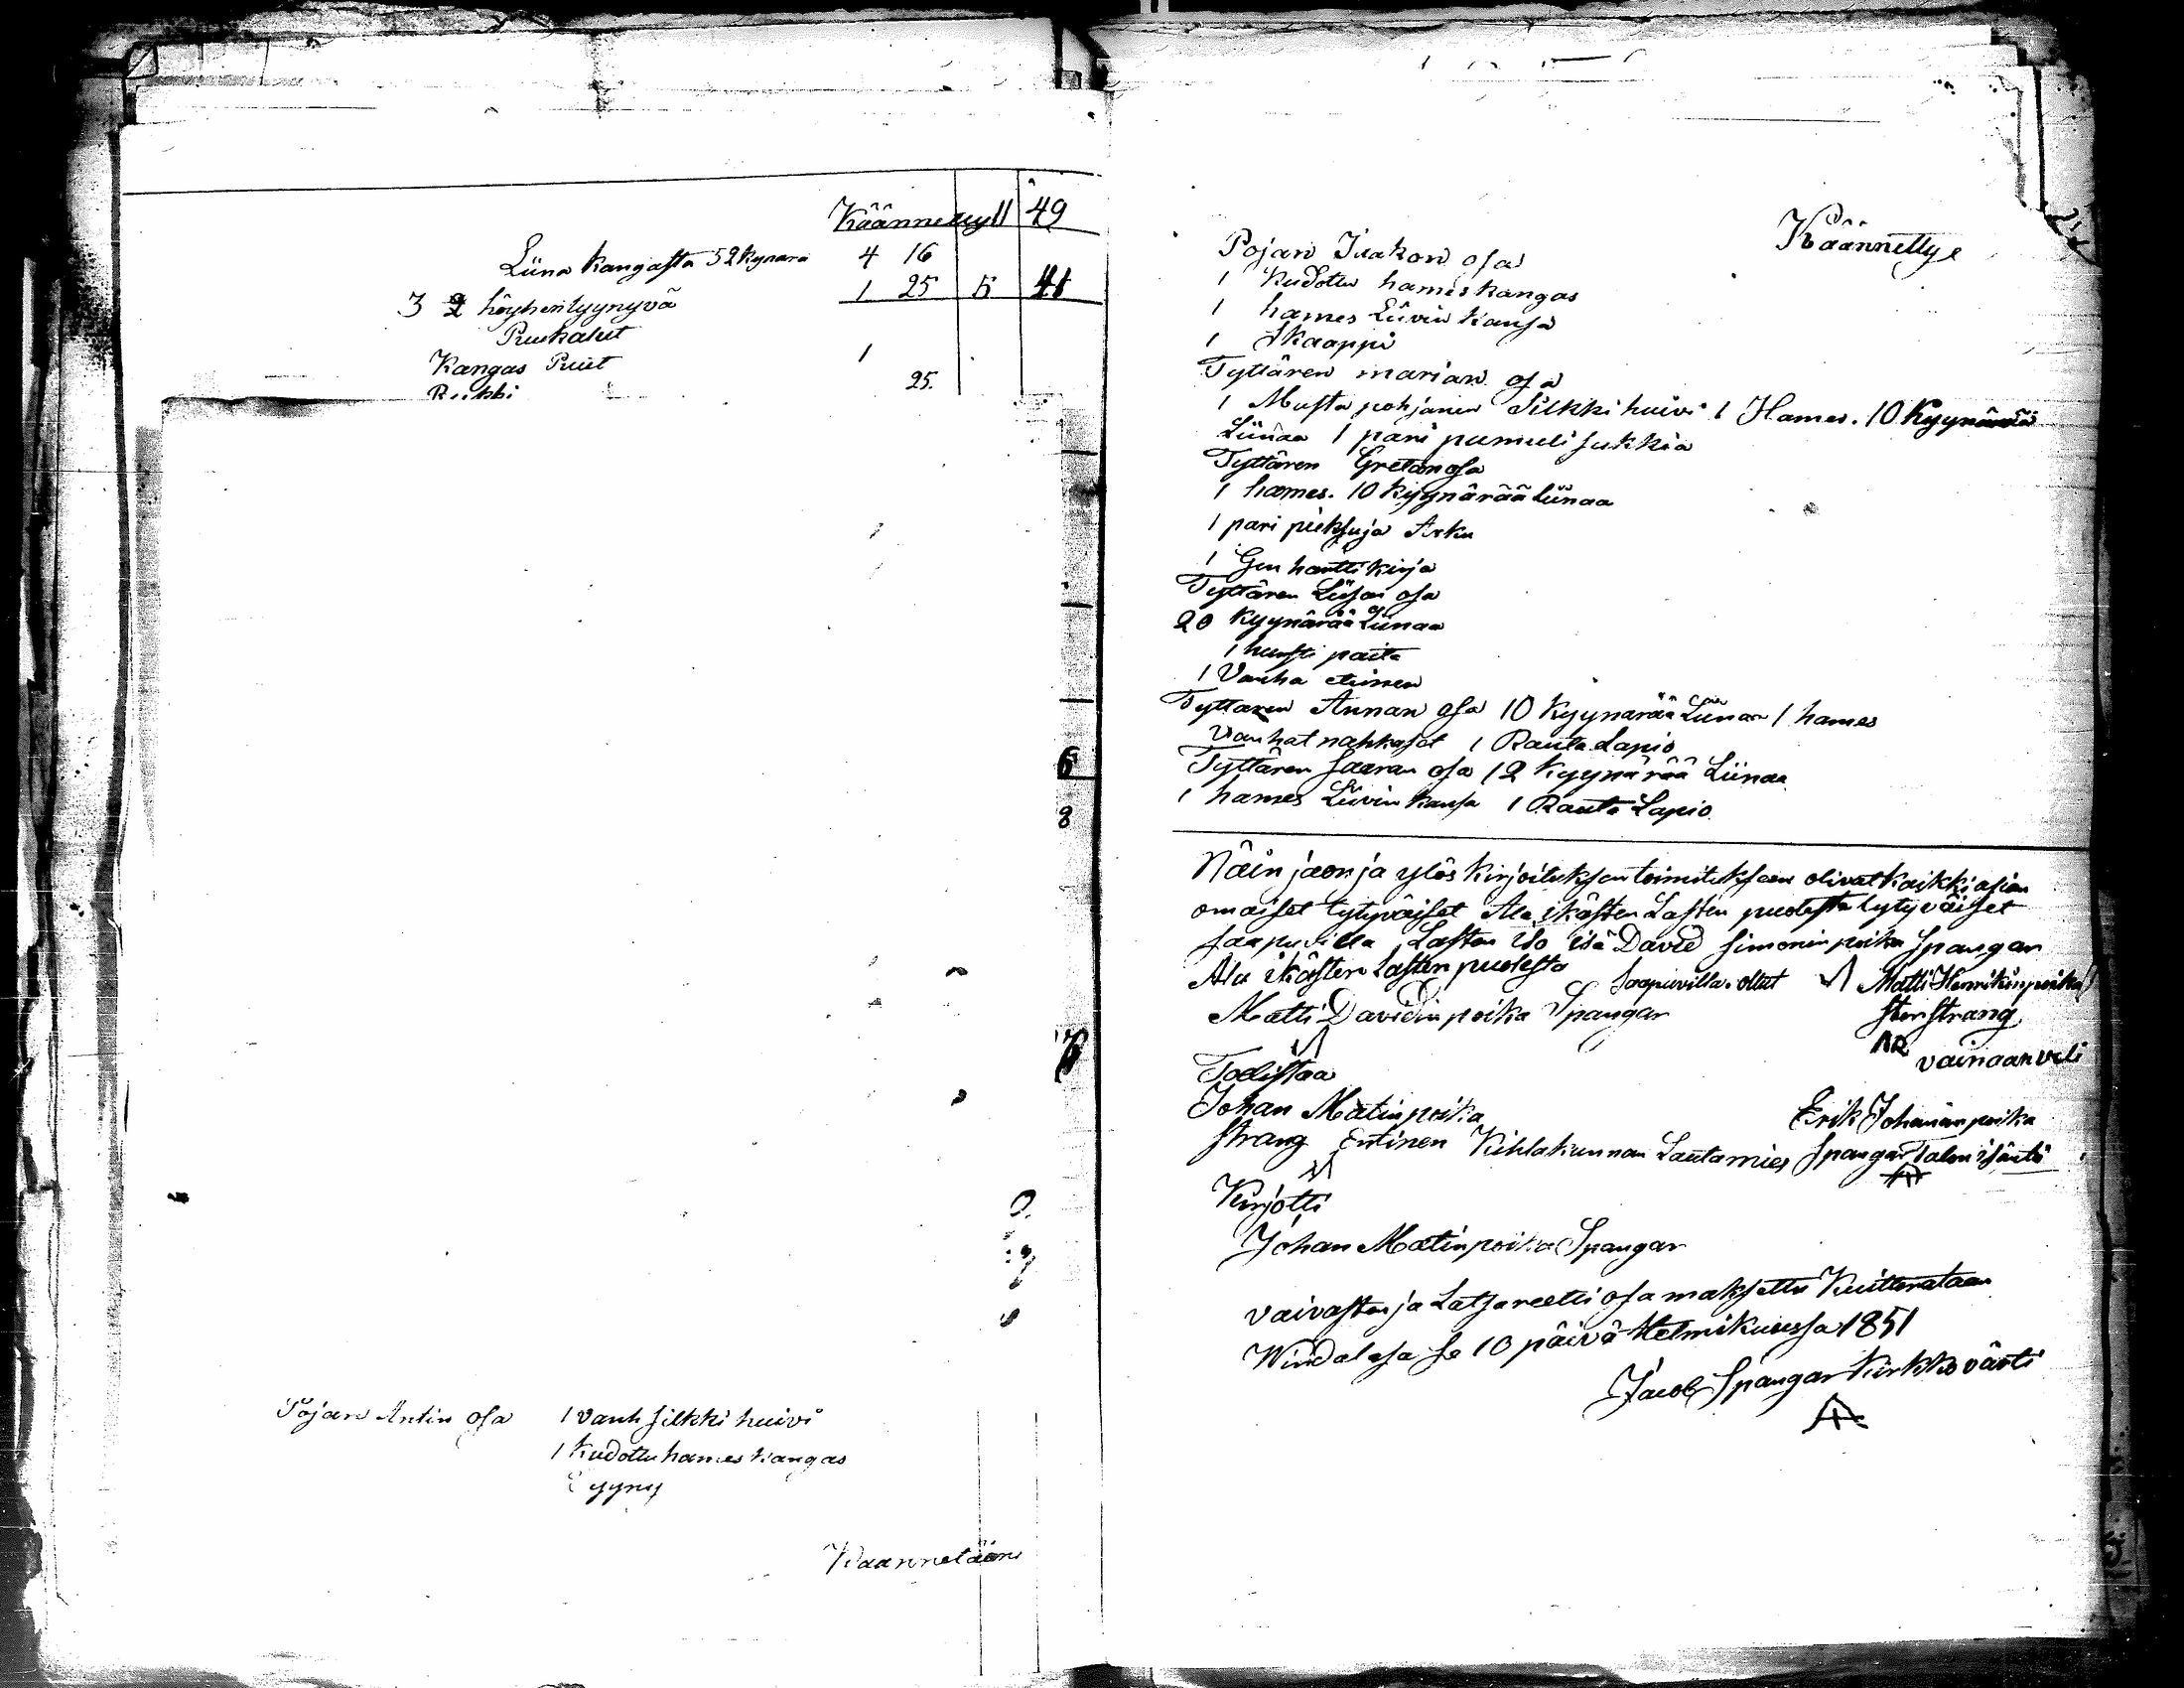 Käännettyll 49
Liina kangasta 52 kynärä 4 16
3 2 höyhentyynyvä 1 25 5 41
Puukalut
Kangas Puut 1
Reikki 25.
6
8
Pojan Antin osa 1 vanh silkki huivi
1 kudottu hames kangas
tyyny
Käännetään
Käännettye
Pojan Isakon osa
1 Kudottu hames kangas
1 hames Liivin kansa
1 skaappi
Tyttären marian osa
1 Musta pohjanen silkki huivi 1 Hames. 10 Kyynärää
Liinaa 1 pari pumuli sukkia
Tyttären Gretan osa
1 hames. 10 kyynärää Liinaa
1 pari pieksuja Arku
1 hantti kirja
Tyttären Liisan osa
20 Kyynärää Liinaa
1 hursti paita
1 Vanha
Tyttaren Annan osa 10 Kyynärää Liinaa 1 hames
Vanhat nahkaset 1 Rauta Lapio
Tyttären saaran osa 12 Kyynärää Liinaa
1 hames Liivin kansa 1 Rauta Lapio
Näin jaon ja ylös kirjoituksen toimitukseen olivat kaikki asian
omaiset tytyväiset Ala ikästen Lasten puolesta tytyväiset
saapuvilla Lasten iso isä David simonin poika spangar
Ala ikästen Lasten puolesta saapuvilla ollut Matti Henrikin poika
Matti Davidin poika Spangar Stenstrang
vainaan veli
Todistaa
Johan Matin poika Erik Johanan poika
strang Entinen Kihlakunnan Lautamies spangar Talon isäntä
Kirjotti
Johan Matin poika Spangar
vaivasten ja Latsareetti osa maksettu Kuitterataan
Windalasa se 10 päivä Helmikuussa 1851
Jacob Spangar kirkko värti